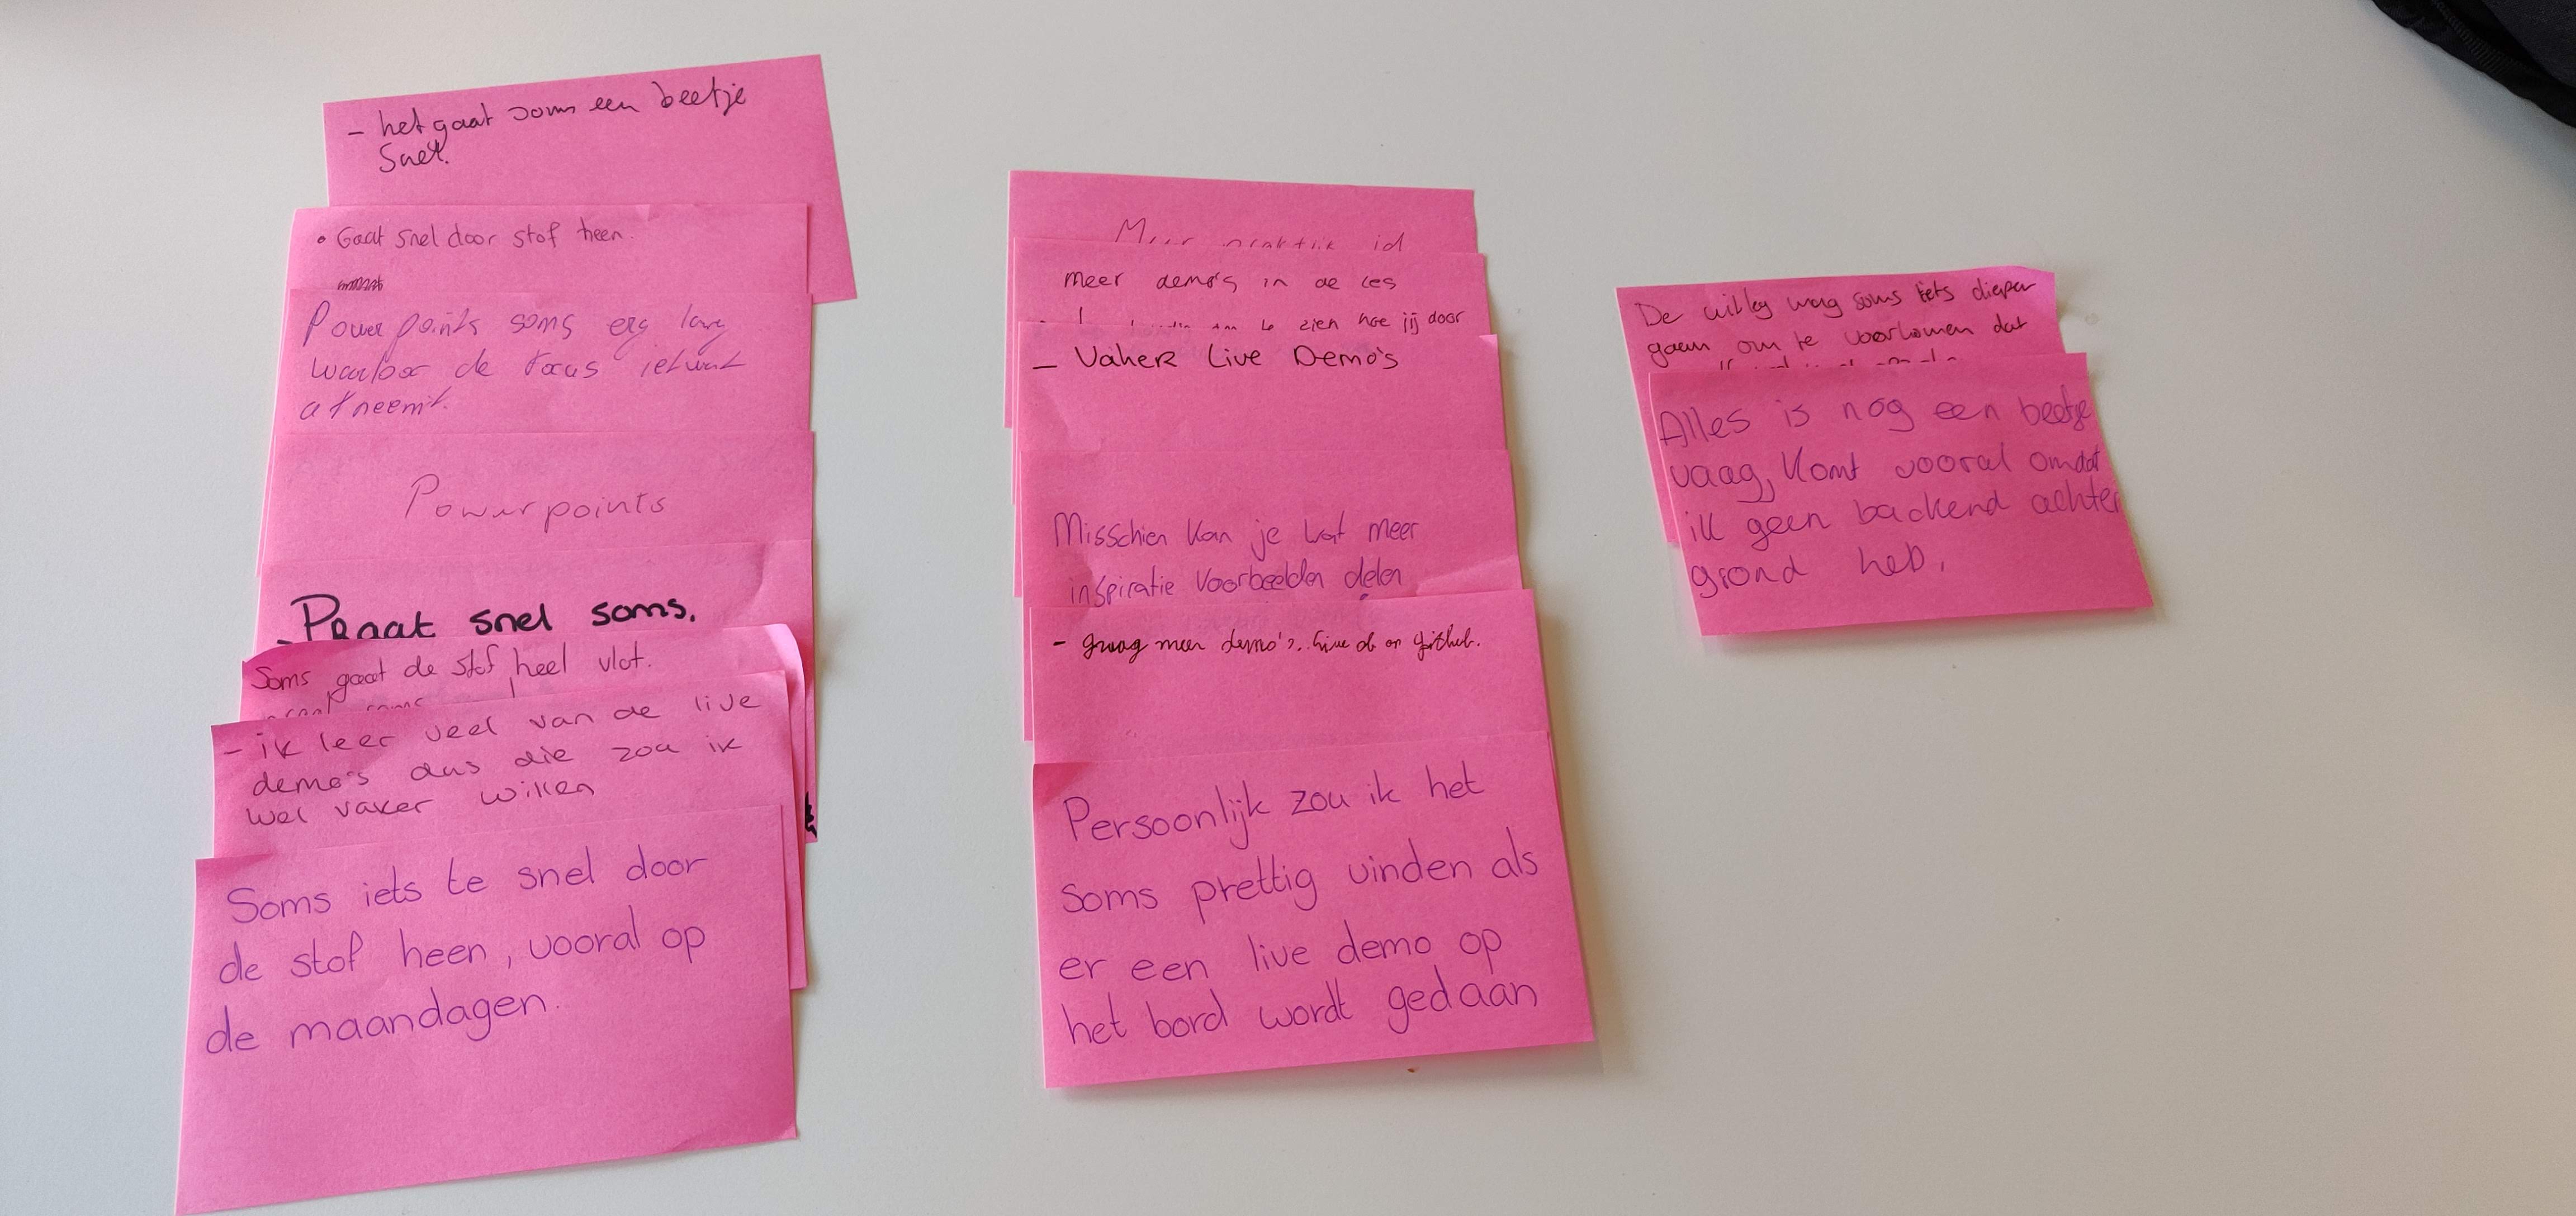 - het gaat soms een beetje
snel.
• Gaat snel door stof heen.
Powerpoints soms erg lang
waardoor de focus ietwat
afneemt.
Powerpoints
- Praat snel soms.
Soms gaat de stof heel vlot.
praat soms
- ik leer veel van de live
demo's dus die zou ik
wel vaker willen
Soms iets te snel door
de stof heen, vooral op
de maandagen.
Meer praktijk
meer demo's in de les
te zien hoe jij door
- Vaker Live Demo's
Misschien kan je wat meer
inspiratie voorbeelden delen
- graag meer demo's.. live of on github.
Persoonlijk zou ik het
soms prettig vinden als
er een live demo op
het bord wordt gedaan
De uitleg mag soms iets dieper
gaan om te voorkomen dat
Alles is nog een beetje
vaag, komt vooral omdat
ik geen backend achter
grond heb.